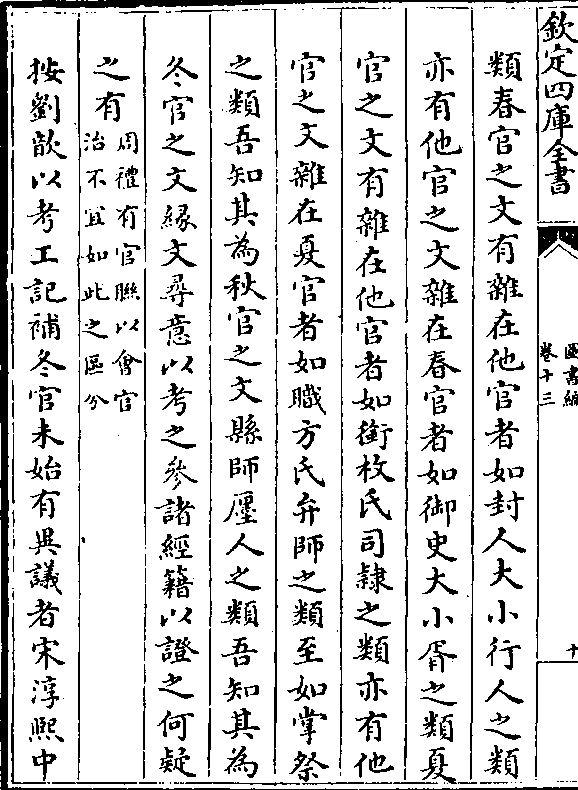 欽定四庫全書
圖書編
卷十三
十
類春官之文有雜在他官者如封人大小行人之類
亦有他官之文雜在春官者如御史大小胥之類夏
官之文有雜在他官者如銜枚氏司隸之類亦有他
官之文雜在夏官者如職方氏弁師之類至如掌祭
之類吾知其為秋官之文縣師廛人之類吾知其為
冬官之文緣文尋意以考之參諸經籍以證之何疑
之有周禮有官聯以㑹官
治不宜如此之區分
按劉歆以考工記補冬官未始有異議者宋淳熈中